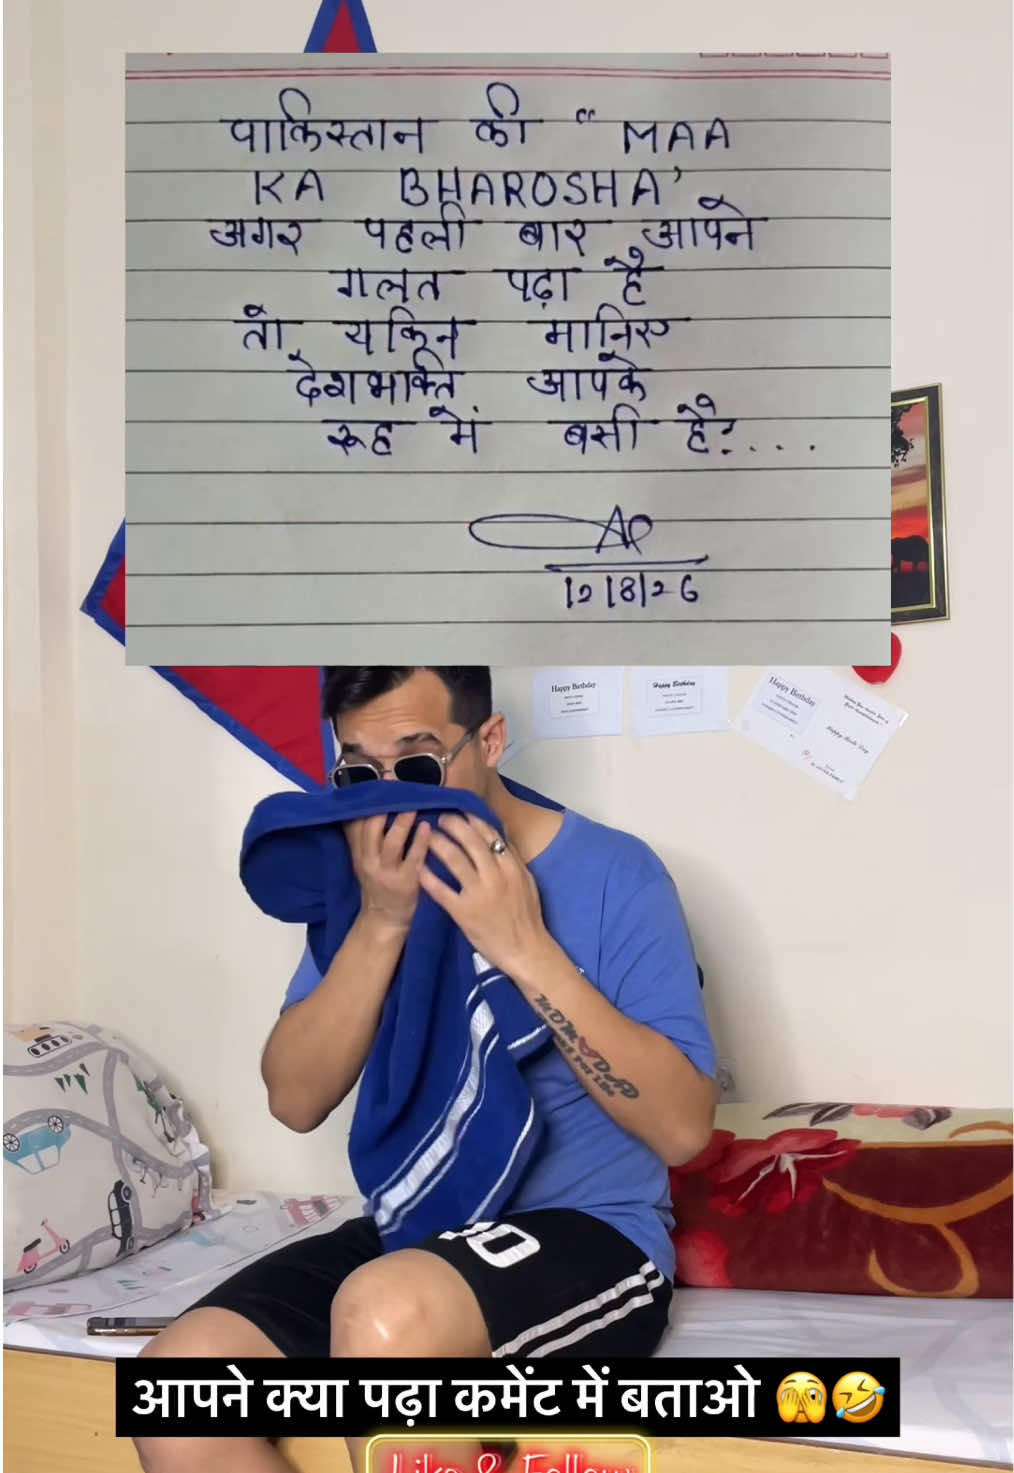 पाकिस्तान की "MAA
KA BHAROSHA'
अगर पहली बार आपने
गलत पढ़ा है
तो यकिन मानिए
देशभक्ति आपके
रूह में बसी है?....
AP
12/8/26
Happy Birthday
Happy Birthday
Happy Birthday
MOM DAD
आपने क्या पढ़ा कमेंट में बताओ 🫣🤣
Like & Follow